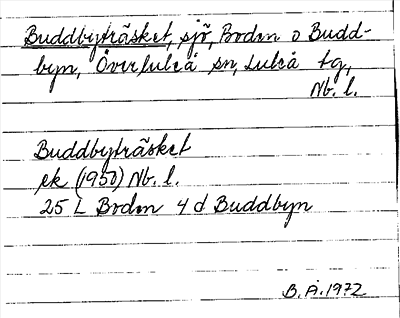 Buddbyträsket, sjö, Boden o Budd-
byn, Överluleå sn, Luleå tg,
Nb. l.
Buddbyträsket
ek (1950) Nb. l.
25 L Boden 4 d Buddbyn
B. Å. 1972